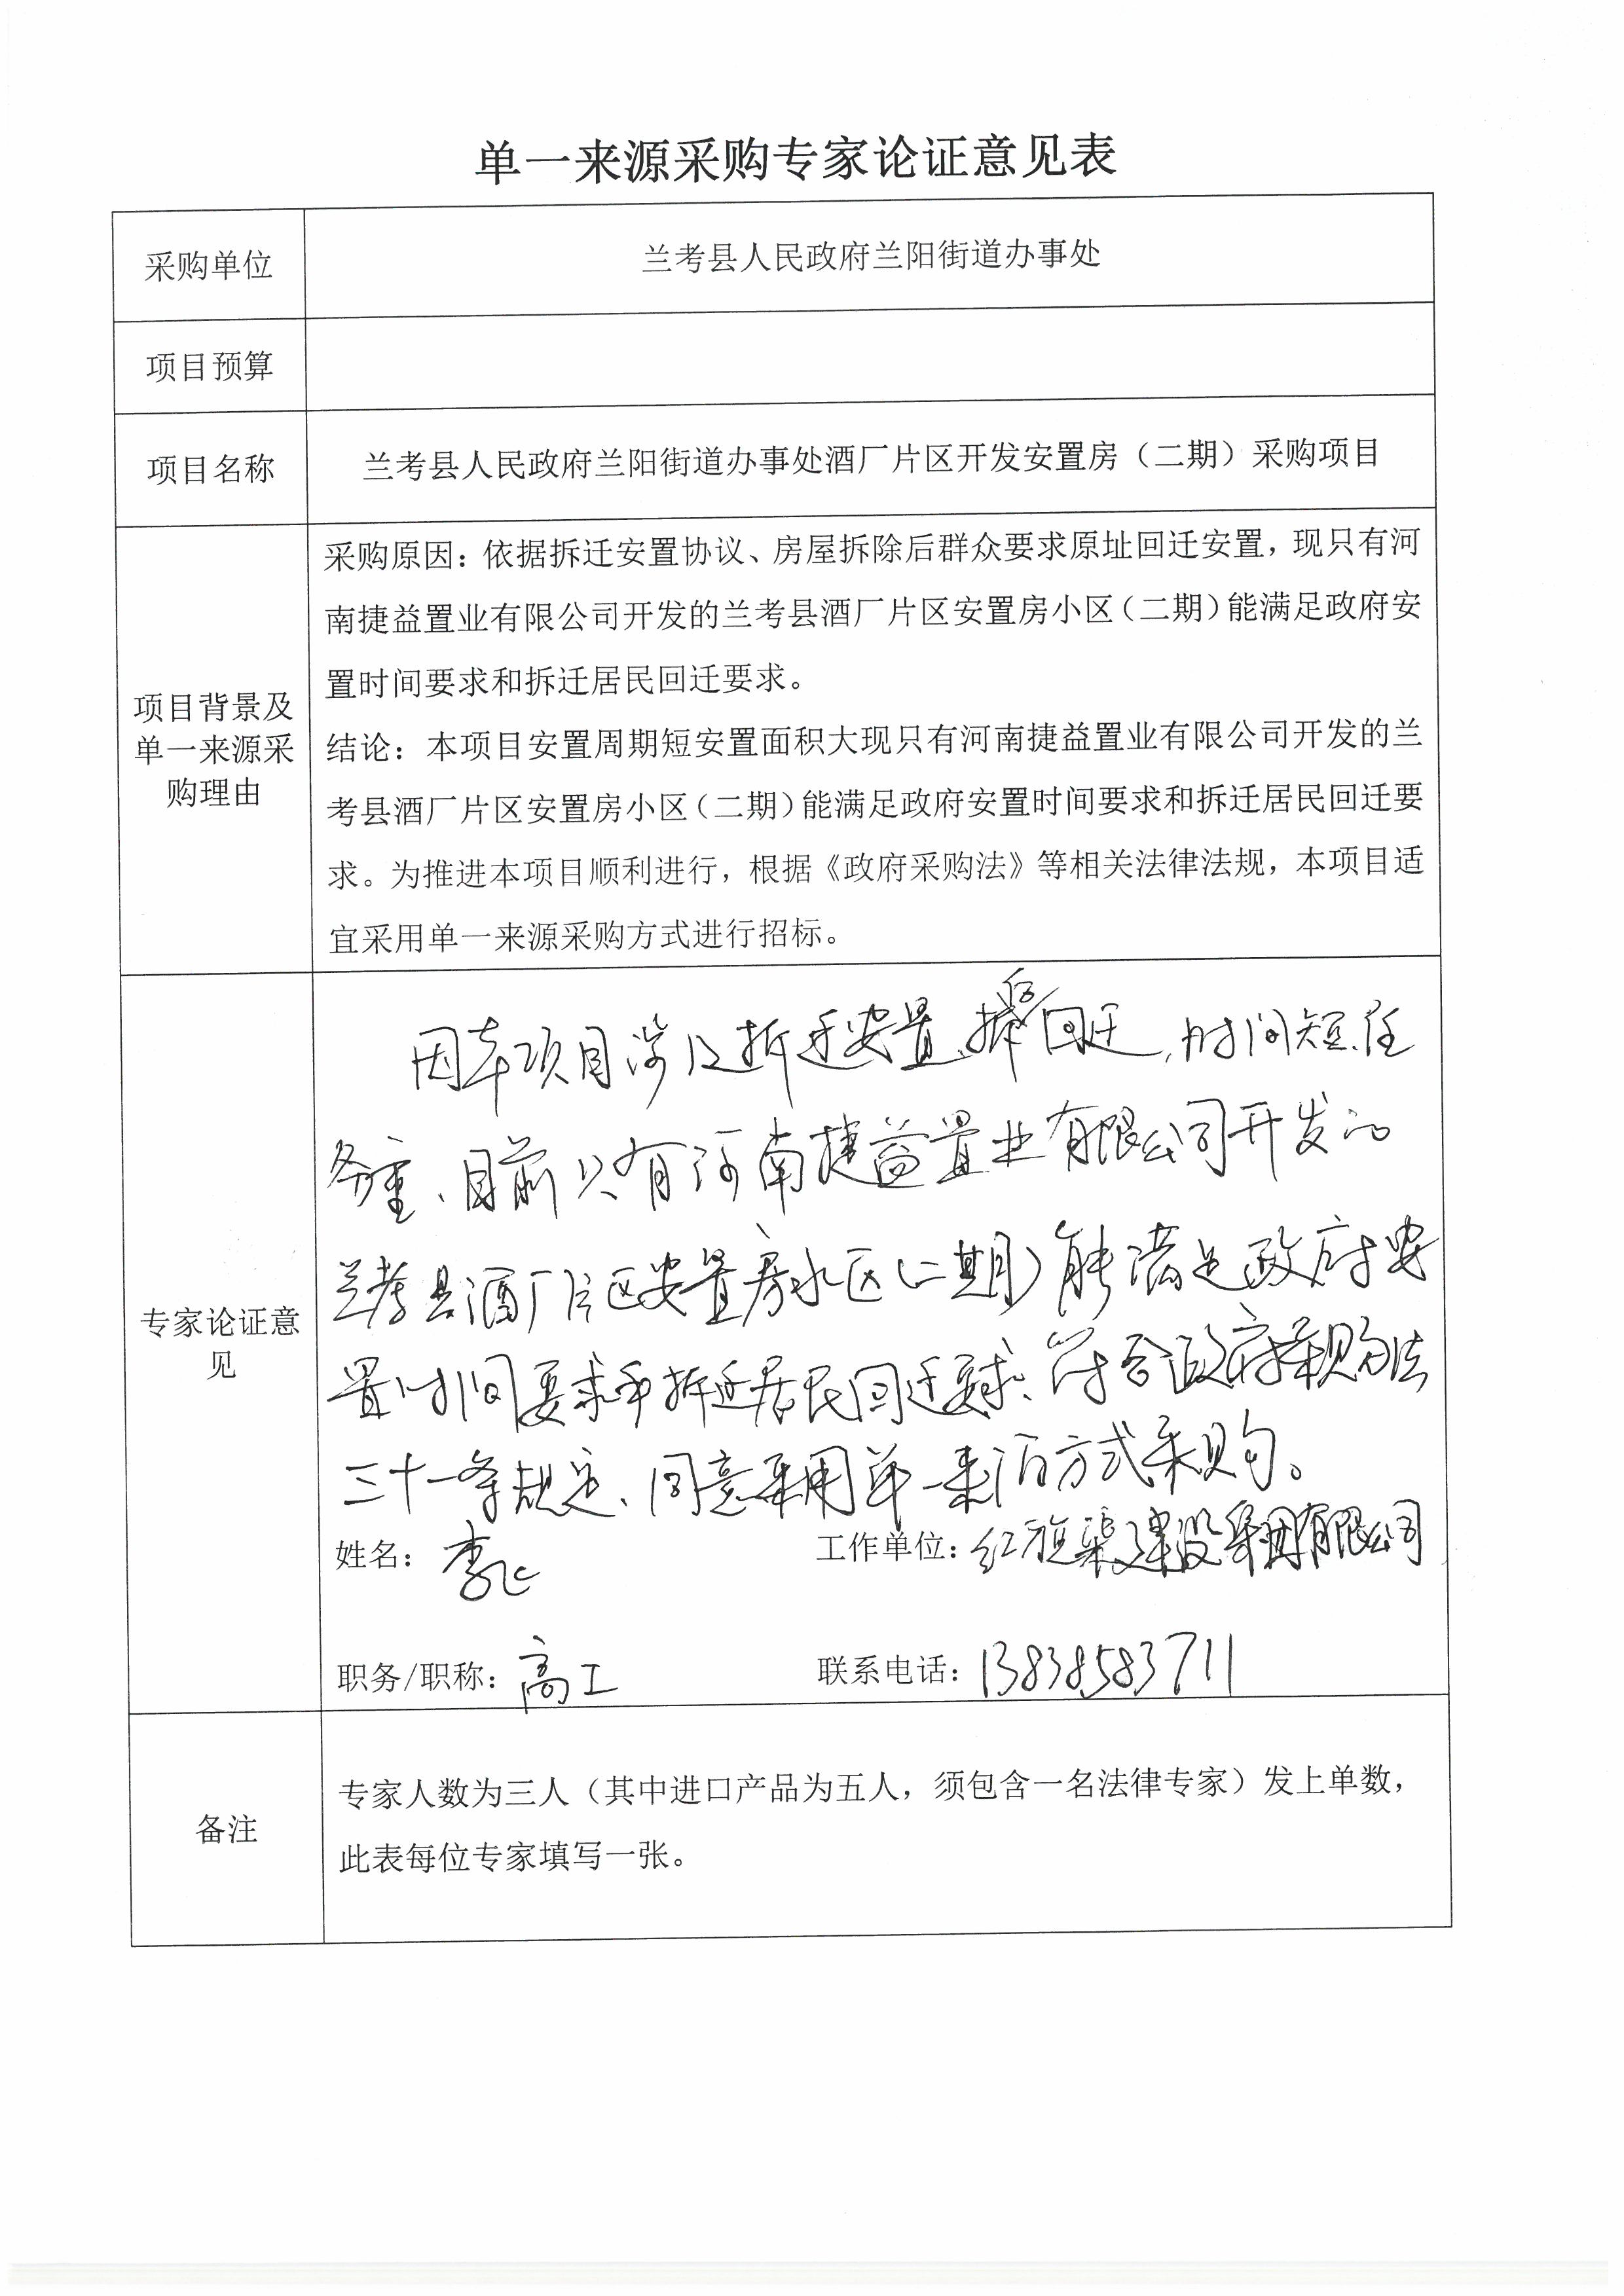 单一来源采购专家论证意见表
采购单位
兰考县人民政府兰阳街道办事处
项目预算
项目名称
兰考县人民政府兰阳街道办事处酒厂片区开发安置房（二期）采购项目
项目背景及
单一来源采
购理由
采购原因：依据拆迁安置协议、房屋拆除后群众要求原址回迁安置，现只有河
南捷益置业有限公司开发的兰考县酒厂片区安置房小区（二期）能满足政府安
置时间要求和拆迁居民回迁要求。
结论：本项目安置周期短安置面积大现只有河南捷益置业有限公司开发的兰
考县酒厂片区安置房小区（二期）能满足政府安置时间要求和拆迁居民回迁要
求。为推进本项目顺利进行，根据《政府采购法》等相关法律法规，本项目适
宜采用单一来源采购方式进行招标。
专家论证意
见
因本项目涉及拆迁安置、回迁，时间短、任
务重、目前只有河南捷益置业有限公司开发的
兰考县酒厂片区安置房小区（二期）能满足政府安
置时间要求和拆迁居民回迁要求、符合政府采购法
三十一条规定、同意采用单一来源方式采购。
姓名：李飞
工作单位：红旗渠建设集团有限公司
职务/职称：高工
联系电话：13838583711
备注
专家人数为三人（其中进口产品为五人，须包含一名法律专家）发上单数，
此表每位专家填写一张。